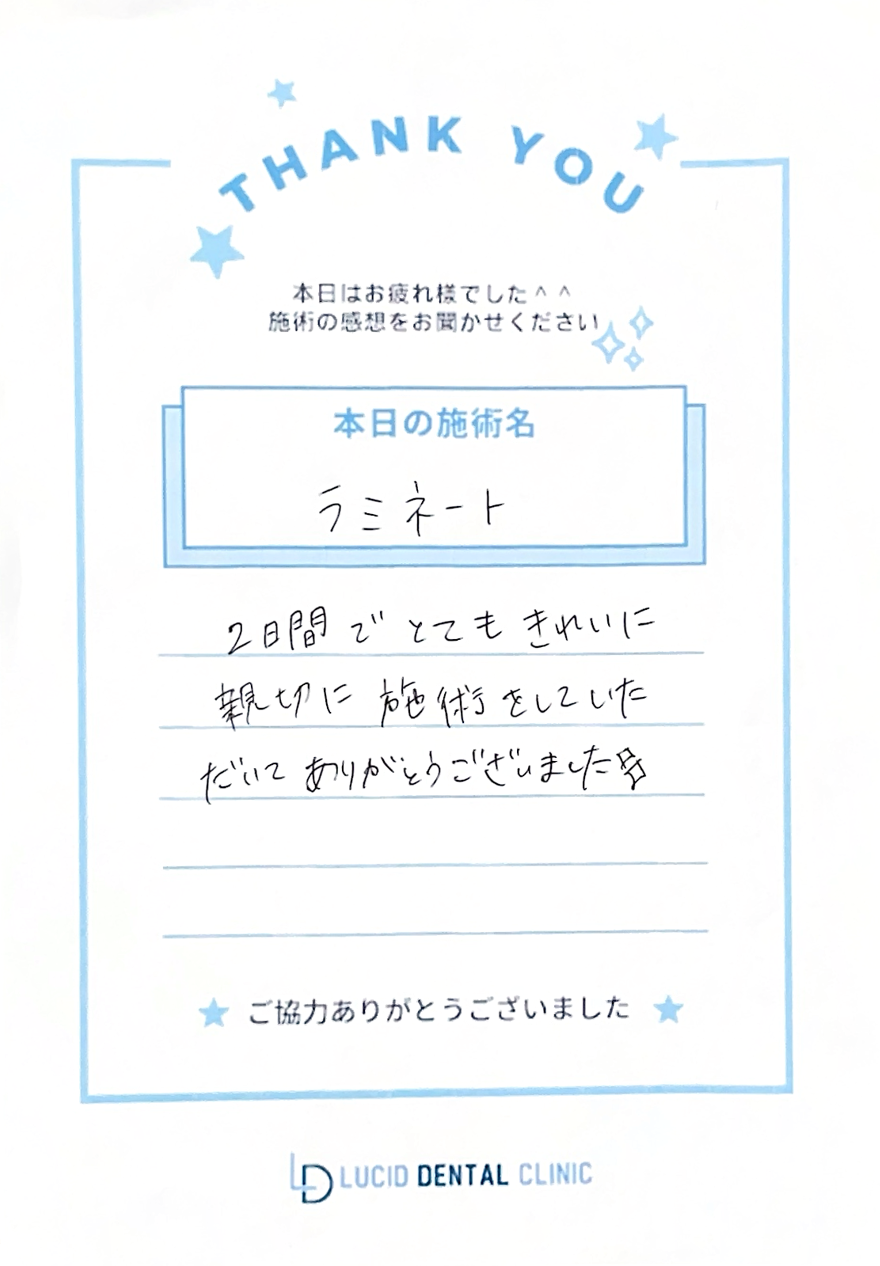 THANK YOU
本日はお疲れ様でした^ ^
施術の感想をお聞かせください
本日の施術名
ラミネート
2日間でとてもきれいに
親切に施術をしていた
だいてありがとうございました
ご協力ありがとうございました
LD LUCID DENTAL CLINIC